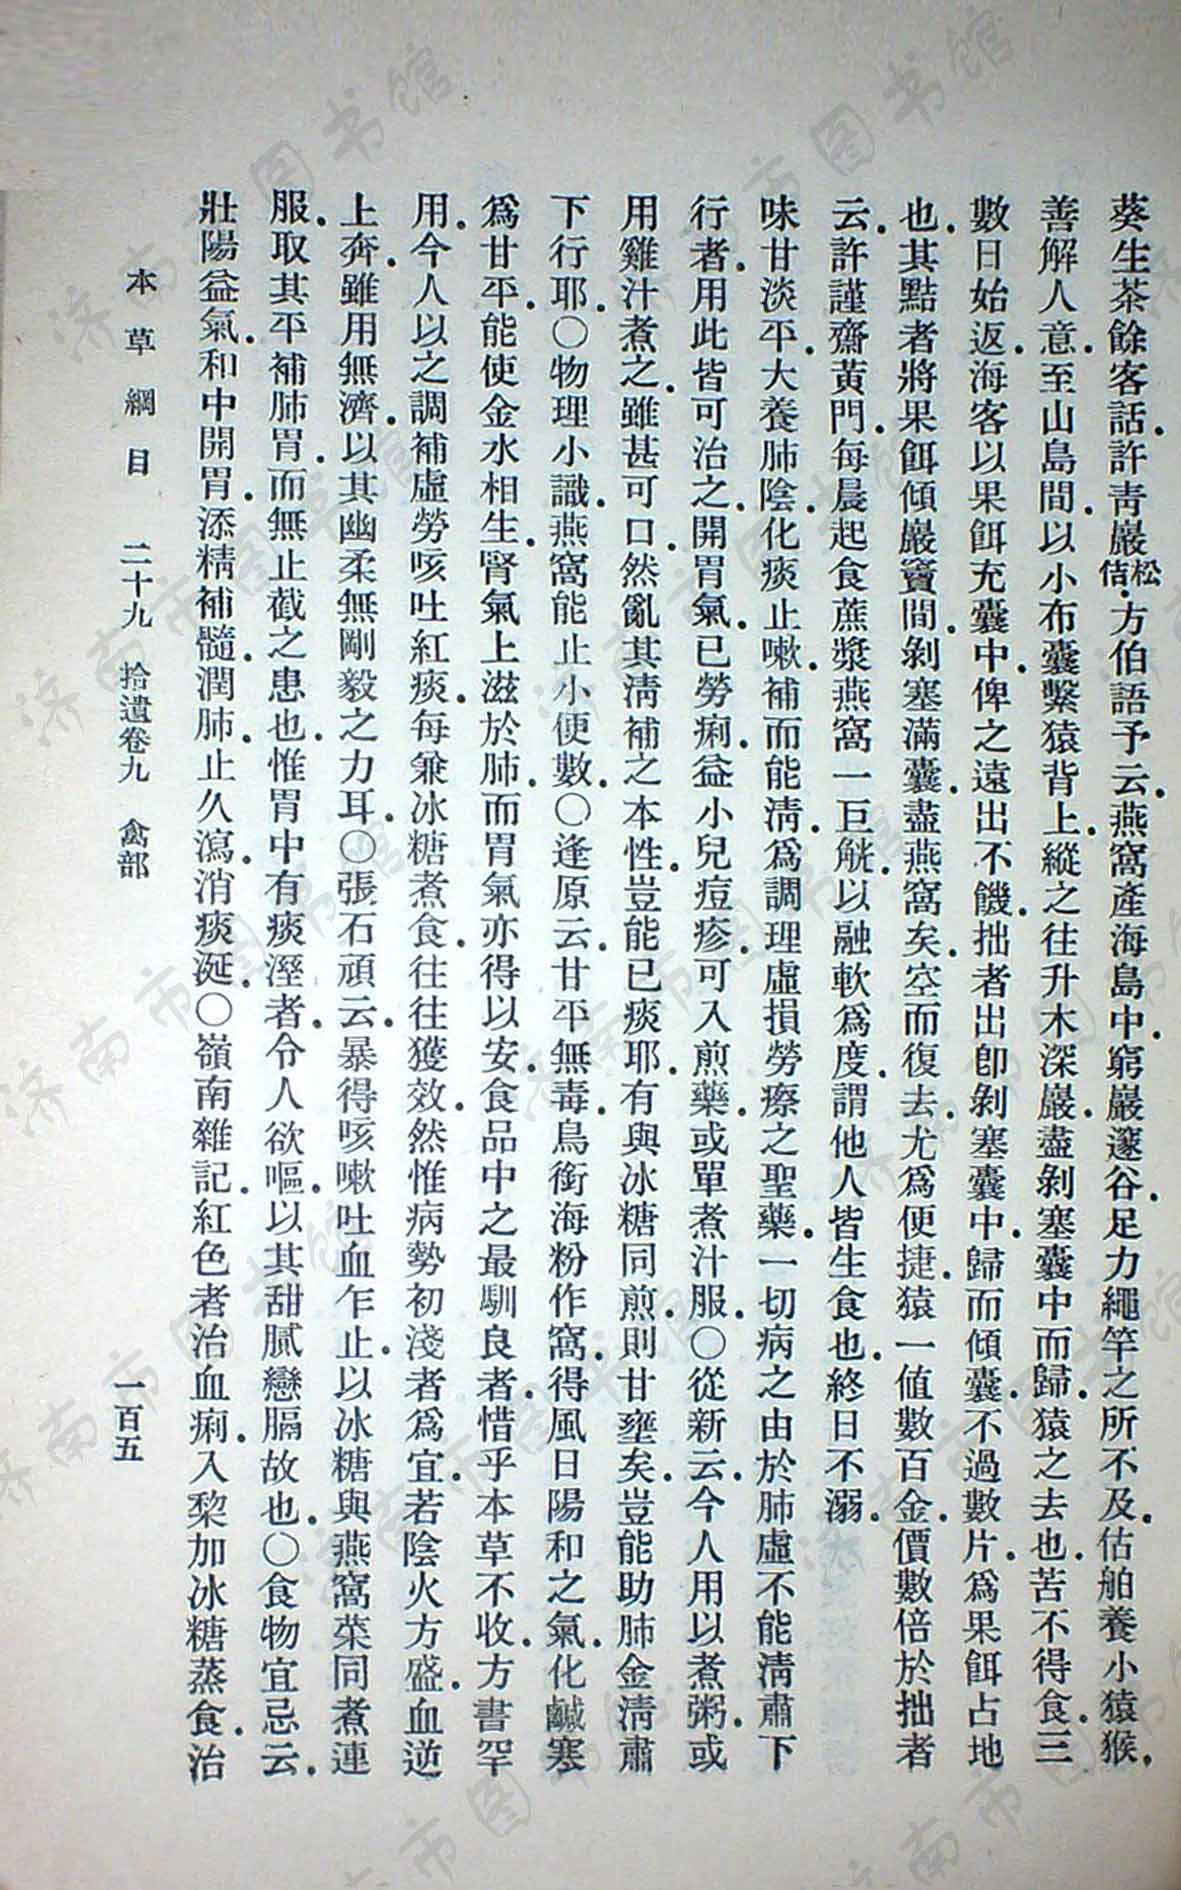 葵生茶餘客話許靑巖松佶方伯語予云燕窩產海島中窮巖邃谷足力繩竿之所不及估舶養小猿猴
善解人意至山島間以小布囊繫猿背上縱之往升木深巖盡剝塞囊中而歸猿之去也苦不得食三
數日始返海客以果餌充囊中俾之遠出不饑拙者出卽剝塞囊中歸而傾囊不過數片爲果餌占地
也其黠者將果餌傾巖竇間剝塞滿囊盡燕窩矣空而復去尤爲便捷猿一値數百金價數倍於拙者
云許謹齋黃門每晨起食蔗漿燕窩一巨觥以融軟爲度謂他人皆生食也終日不溺
味甘淡平大養肺陰化痰止嗽補而能淸爲調理虛損勞瘵之聖藥一切病之由於肺虛不能淸肅下
行者用此皆可治之開胃氣已勞痢益小兒痘疹可入煎藥或單煮汁服〇從新云今人用以煮粥或
用雞汁煮之雖甚可口然亂其淸補之本性豈能已痰耶有與冰糖同煎則甘壅矣豈能助肺金淸肅
下行耶〇物理小識燕窩能止小便數〇逢原云甘平無毒鳥銜海粉作窩得風日陽和之氣化鹹寒
爲甘平能使金水相生腎氣上滋於肺而胃氣亦得以安食品中之最馴良者惜乎本草不收方書罕
用今人以之調補虛勞咳吐紅痰每兼冰糖煮食往往獲效然惟病勢初淺者爲宜若陰火方盛血逆
上奔雖用無濟以其幽柔無剛毅之力耳〇張石頑云暴得咳嗽吐血乍止以冰糖與燕窩菜同煮連
服取其平補肺胃而無止截之患也惟胃中有痰溼者令人欲嘔以其甜膩戀膈故也〇食物宜忌云
壯陽益氣和中開胃添精補髓潤肺止久瀉消痰涎〇嶺南雜記紅色者治血痢入黎加冰糖蒸食治
本草綱目 二十九 拾遺卷九 禽部 一百五
济南市图书馆